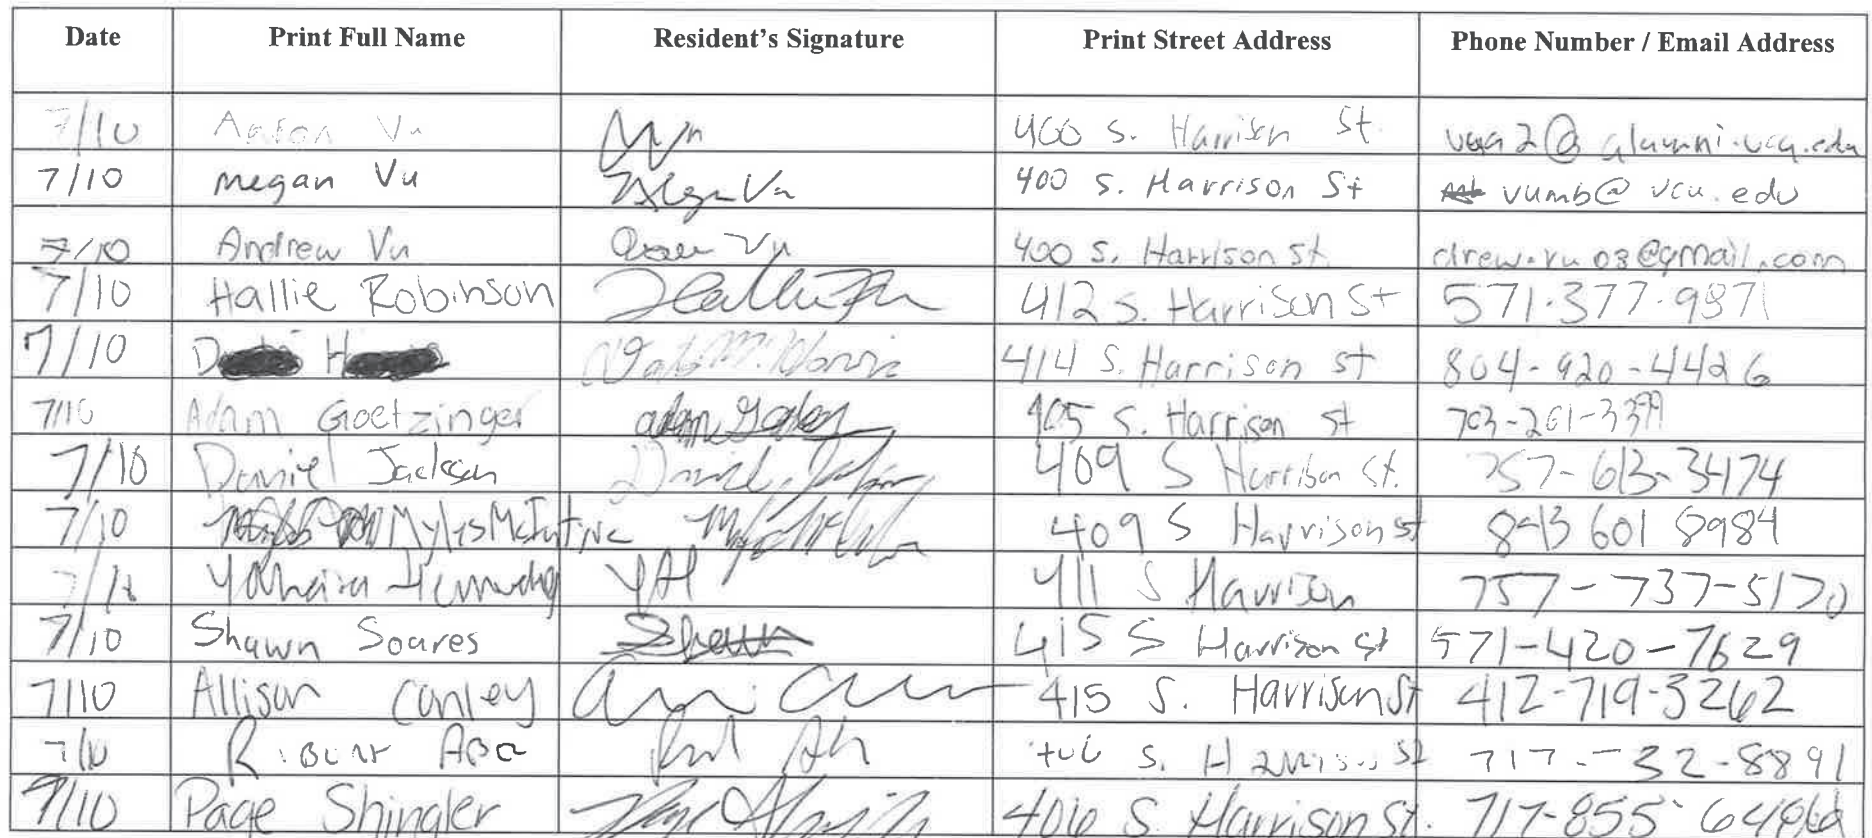 Date Print Full Name Resident's Signature Print Street Address Phone Number / Email Address
7/10 Aaron Vu 400 S. Harrison St. @alumni.vcu.edu
7/10 Megan Vu Megan Vu 400 S. Harrison St vumb@vcu.edu
7/10 Andrew Vu Vu 400 S. Harrison St. drew.vu03@gmail.com
7/10 Hallie Robinson 412 S. Harrison St 571-377-9871
7/10 D H 414 S. Harrison St 804-920-4426
7/10 Adam Goetzinger adam 405 S. Harrison St 703-201-3399
7/10 Daniel Jackson Daniel 409 S Harrison St. 757-613-3474
7/10 Myles McIntire 409 S Harrison St 843 601 8984
Yahaira YAH 411 S Harrison 757-737-5170
7/10 Shawn Soares Shawn 415 S Harrison St 571-420-7629
7/10 Allison Conley 415 S. Harrison St 412-719-3262
7/10 S. Harrison St
7/10 Page Shingler 406 S Harrison St. 717-855-